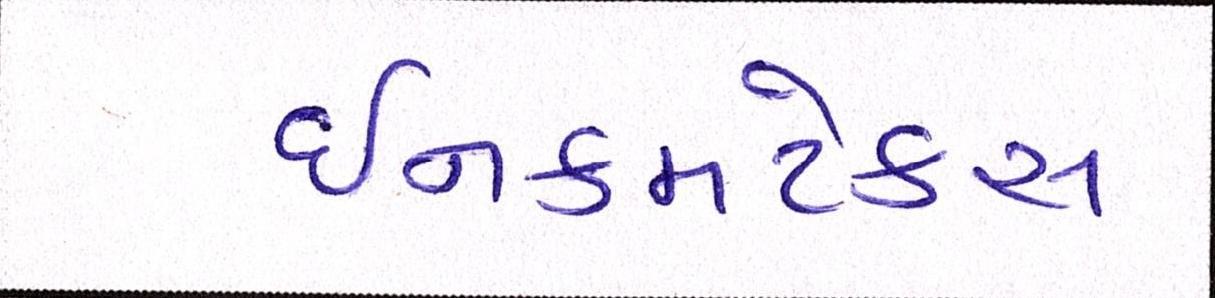 ઈનકમટેકસ